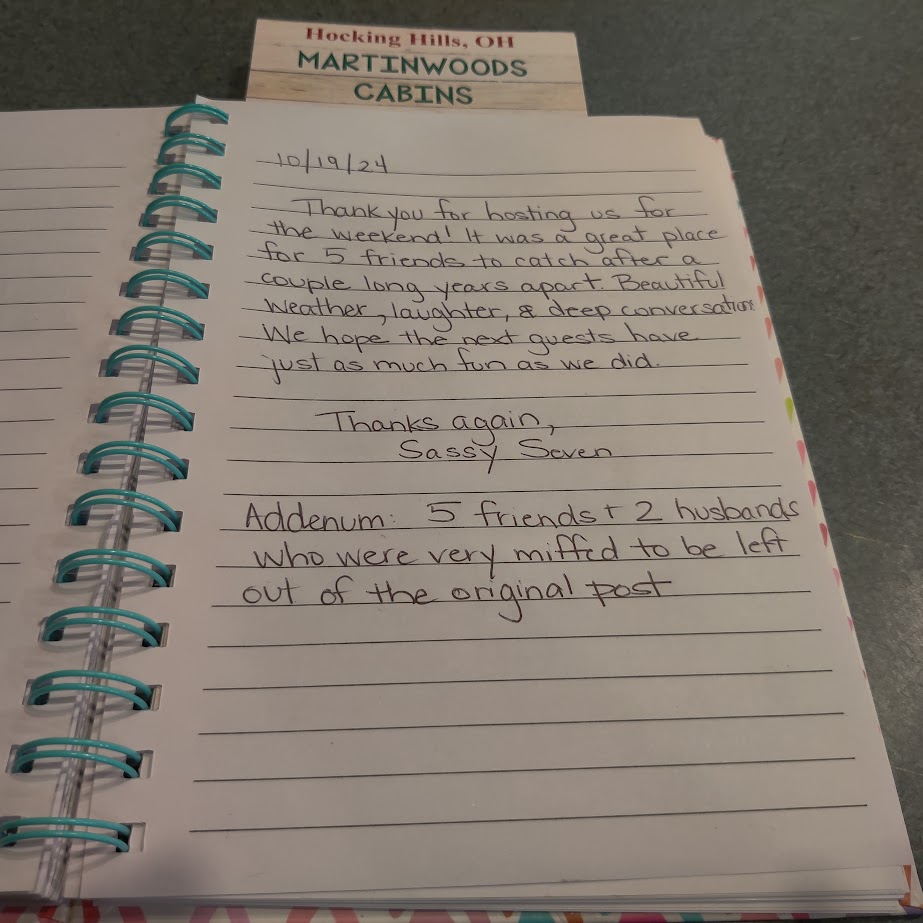 Hocking Hills, OH
MARTINWOODS
CABINS
10/19/24
Thank you for hosting us for
the weekend! It was a great place
for 5 friends to catch after a
couple long years apart. Beautiful
weather, laughter, & deep conversation.
We hope the next guests have
just as much fun as we did.
Thanks again,
Sassy Seven
Addenum: 5 friends + 2 husbands
who were very miffed to be left
out of the original post